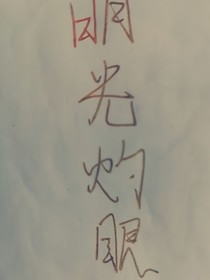 明光灼眼